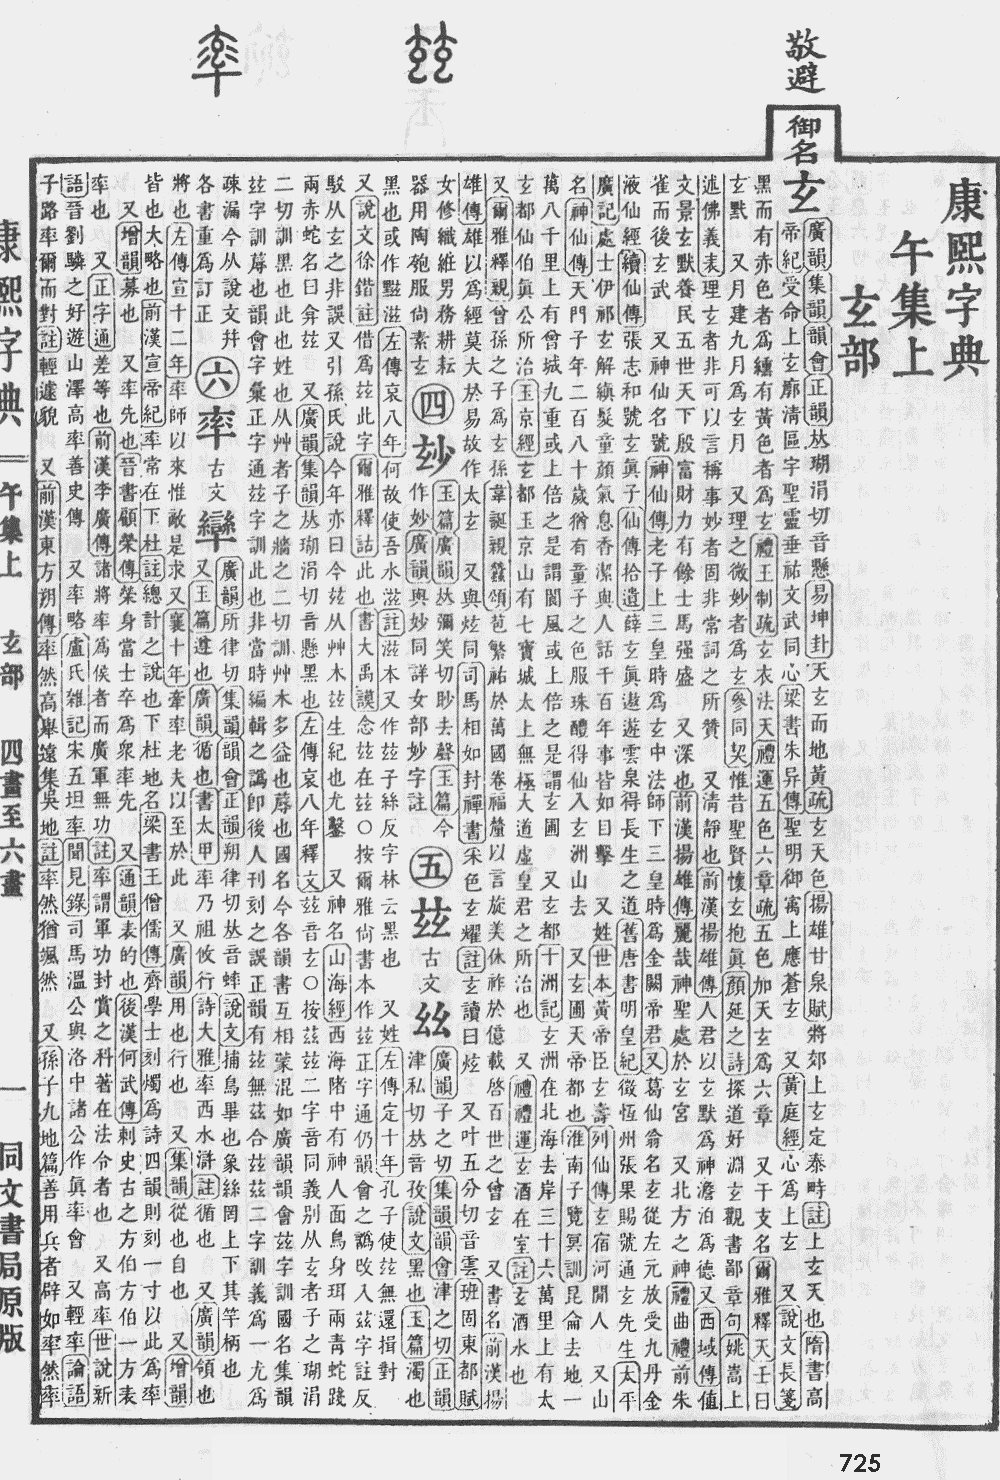 敬避
御名
康熙字典
午集上
玄部
玄
廣韻集韻韻會正韻𠀤瑚涓切音懸易坤卦天玄而地黃疏玄天色揚雄甘泉賦將郊上玄定泰畤註上玄天也隋書高
帝紀受命上玄廓清區宇聖靈垂祐文武同心梁書朱异傳聖明御寓上應蒼玄 又黃庭經心爲上玄 又說文長箋
黑而有赤色者爲玄有黃色者爲玄禮王制疏玄衣法天禮運五色六章疏五色加天玄爲六章 又干支名爾雅釋天壬曰
玄默 又月建九月爲玄月 又理之微妙者爲玄參同契惟昔聖賢懷玄抱眞顏延之詩探道好淵玄觀書鄙章句姚嵩上
述佛義表理玄者非可以言稱事妙者固非常詞之所贊 又淸靜也前漢揚雄傳人君以玄默爲神澹泊爲德又西域傳值
文景玄默養民五世天下殷富財力有餘士馬强盛 又深也前漢揚雄傳麗哉神聖處於玄宮 又北方之神禮曲禮前朱
雀而後玄武 又神仙名號神仙傳老子上三皇時爲玄中法師下三皇時爲金闕帝君又葛仙翁名玄從左元放受九丹金
液仙經續仙傳張志和號玄眞子仙傳拾遺薛玄眞遨遊雲泉得長生之道舊唐書明皇紀徵恆州張果賜號通玄先生太平
廣記處士伊祁玄解縝髮童顏氣息香潔與人話千百年事皆如目擊 又姓世本黃帝臣玄壽列仙傳玄宿河閒人 又山
名神仙傳天門子年二百八十歲猶有童子之色服珠醴得仙入玄洲山去 又玄圃天帝都也淮南子覽冥訓崑崙去地一
萬八千里上有曾城九重或上倍之是謂閬風或上倍之是謂玄圃 又玄都十洲記玄洲在北海去岸三十六萬里上有太
玄都仙伯眞公所治玉京經玄都玉京山有七寶城太上無極大道虛皇君之所治也 又禮禮運玄酒在室註玄酒水也
又爾雅釋親曾孫之子爲玄孫韋誕親蠶頌苞繁祐於萬國卷福釐以言旋美休祚於億載啓百世之曾玄 又書名前漢揚
雄傳雄以爲經莫大於易故作太玄 又與炫同司馬相如封禪書采色玄耀註玄讀曰炫 又叶五分切音雲班固東都賦
女修織紝男務耕耘器用陶匏服尚素玄
四
玅
玉篇廣韻𠀤彌笑切眇去聲玉篇今作妙廣韻與妙同詳女部妙字註
五
茲
古文
𢆶
廣韻子之切集韻韻會津之切正韻津私切𠀤音孜說文黑也玉篇濁也
黑也或作黰滋左傳哀八年何故使吾水滋註滋本又作茲子絲反字林云黑也 又姓左傳定十年孔子使茲無還揖對
又說文徐鍇註借爲茲此字爾雅釋詁此也書大禹謨念茲在茲〇按爾雅尚書本作茲正字通仍韻會之譌攺入茲字註反
駁从玄之非誤又引孫氏說今年亦曰今茲从艸木茲生紀也尤鑿 又神名山海經西海陼中有神人面鳥身珥兩靑蛇踐
兩赤蛇名曰弇茲 又廣韻集韻𠀤瑚涓切音懸黑也左傳哀八年釋文茲音玄〇按茲茲二字音同義别从玄者子之瑚涓
二切訓黑也此也姓也从艸者子之牆之二切訓艸木多益也蓐也國名今各韻書互相蒙混如廣韻韻會茲字訓國名集韻
茲字訓蓐也韻會字彙正字通茲字訓此也非當時編輯之譌卽後人刊刻之誤正韻有茲無茲合茲茲二字訓義爲一尤爲
疎漏今从說文幷各書重爲訂正
六
率
古文
䢦
廣韻所律切集韻韻會正韻朔律切𠀤音蟀說文捕鳥畢也象絲罔上下其竿柄也
又玉篇遵也廣韻循也書太甲率乃祖攸行詩大雅率西水滸註循也 又廣韻領也
將也左傳宣十二年率師以來惟敵是求又襄十年牽率老夫以至於此 又廣韻用也行也 又集韻從也自也 又增韻
皆也大略也前漢宣帝紀率常在下杜註總計之說也下杜地名梁書王僧儒傳齊學士刻燭爲詩四韻則刻一寸以此爲率
又增韻募也 又率先也晉書顧榮傳榮身當士卒爲衆率先 又通韻表的也後漢何武傳刺史古之方伯方伯一方表
率也 又正字通差等也前漢李廣傳諸將率爲侯者而廣軍無功註率謂軍功封賞之科著在法令者也 又高率世說新
語晉劉驎之好遊山澤高率善史傳 又率略盧氏雜記宋五坦率聞見錄司馬溫公與洛中諸公作眞率會 又輕率論語
子路率爾而對註輕遽貌 又前漢東方朔傳率然高舉遠集吳地註率然猶颯然 又孫子九地篇善用兵者辟如率然率
康熙字典
午集上 玄部 四畫至六畫
一
同文書局原版
725